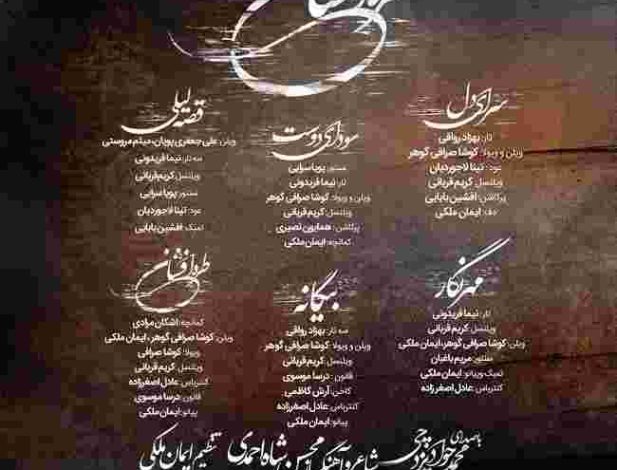 سرای دل
تار: بهزاد رواقی
ویلن و ویولا: کوشا صرافی گوهر
عود: تینا لاجوردیان
ویلنسل: کریم قربانی
پرکاشن: افشین بابایی
دف: ایمان ملکی
سودای دوست
سنتور: پویا سرایی
تار: نیما فریدونی
ویلن و ویولا: کوشا صرافی گوهر
ویلنسل: کریم قربانی
پرکاشن: همایون نصیری
کمانچه: ایمان ملکی
قصه لیلی
ویلن: علی جعفری پویان، میثم مروستی
سه تار: نیما فریدونی
ویلنسل: کریم قربانی
سنتور: پویا سرایی
عود: تینا لاجوردیان
تمبک: افشین بابایی
مهر نگار
تار: نیما فریدونی
ویلنسل: کریم قربانی
ویلن: کوشا صرافی گوهر، ایمان ملکی
سنتور: مریم باغبان
تمبک و پیانو: ایمان ملکی
کنترباس: عادل اصغرزاده
بیگانه
سه تار: بهزاد رواقی
ویلن و ویولا: کوشا صرافی گوهر
ویلنسل: کریم قربانی
قانون: درسا موسوی
کاخن: آرش کاظمی
کنترباس: عادل اصغرزاده
پیانو: ایمان ملکی
طره افشان
کمانچه: اشکان مرادی
ویلن: کوشا صرافی گوهر، ایمان ملکی
ویولا: کوشا صرافی
ویلنسل: کریم قربانی
کنترباس: عادل اصغرزاده
قانون: درسا موسوی
پیانو: ایمان ملکی
با صدای محمدجواد دزدچی شاعر و آهنگساز محسن شاه‌احمدی تنظیم ایمان ملکی